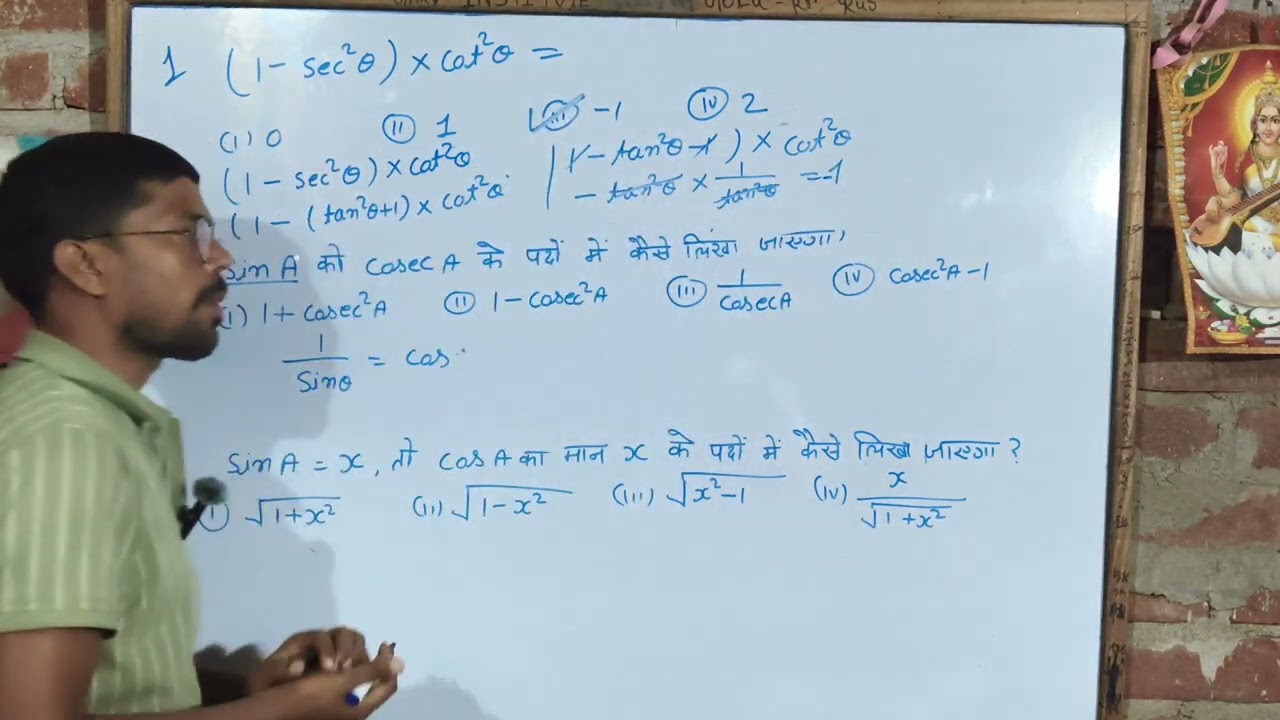 INSTITUTE
1 (1 - sec²θ) × cot²θ =
(i) 0 (ii) 1 (iii) -1 (iv) 2
(1 - sec²θ) × cot²θ
(1 - (tan²θ+1) × cot²θ
1 - tan²θ - 1) × cot²θ
- tan²θ × 1/tan²θ = -1
sin A को cosec A के पदों में कैसे लिखा जाएगा,
(i) 1 + cosec²A (ii) 1 - cosec²A (iii) 1/cosecA (iv) cosec²A - 1
1/sinθ = cos
sin A = x, तो cos A का मान x के पदों में कैसे लिखा जाएगा ?
(i) √1+x² (ii) √1-x² (iii) √x²-1 (iv) x/√1+x²